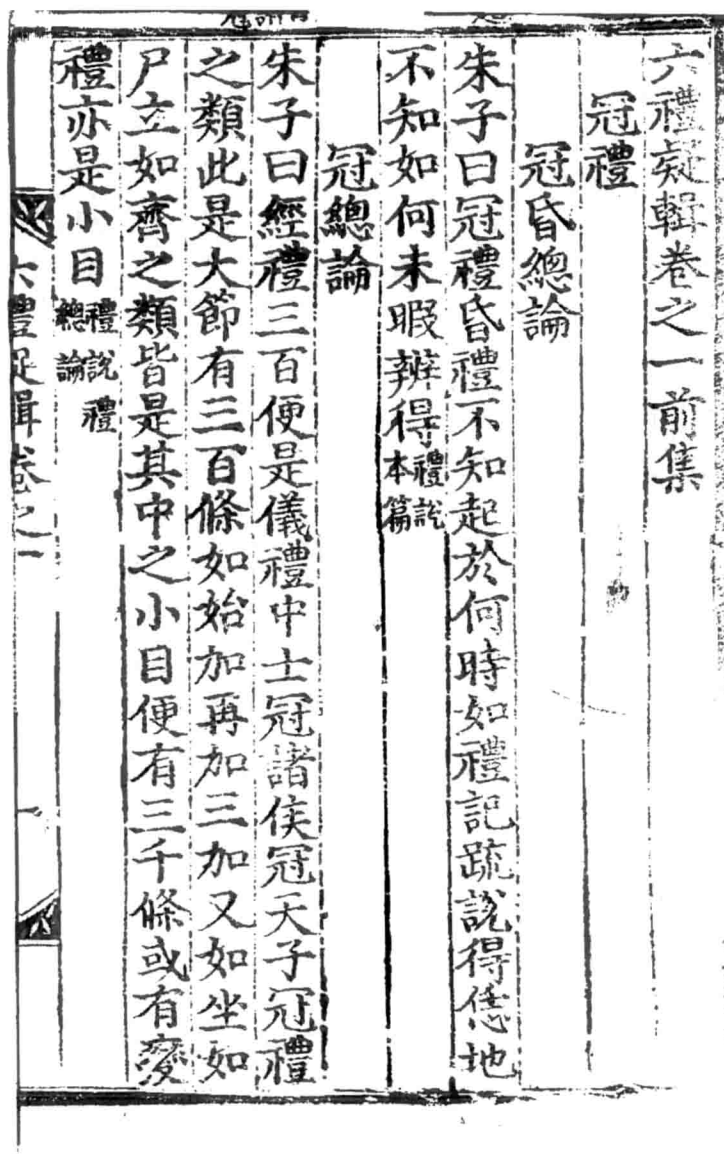 六禮疑輯卷之一前集
冠禮
冠昏總論
朱子曰冠禮昏禮不知起於何時如禮記䟽說得恁地
不知如何未暇辨得禮說本篇
冠總論
朱子曰經禮三百便是儀禮中士冠諸侯冠天子冠禮
之類此是大節有三百條如始加再加三加又如坐如
尸立如齊之類皆是其中之小目便有三千條或有變
禮亦是小目禮說禮總論
六禮疑輯卷之一
一